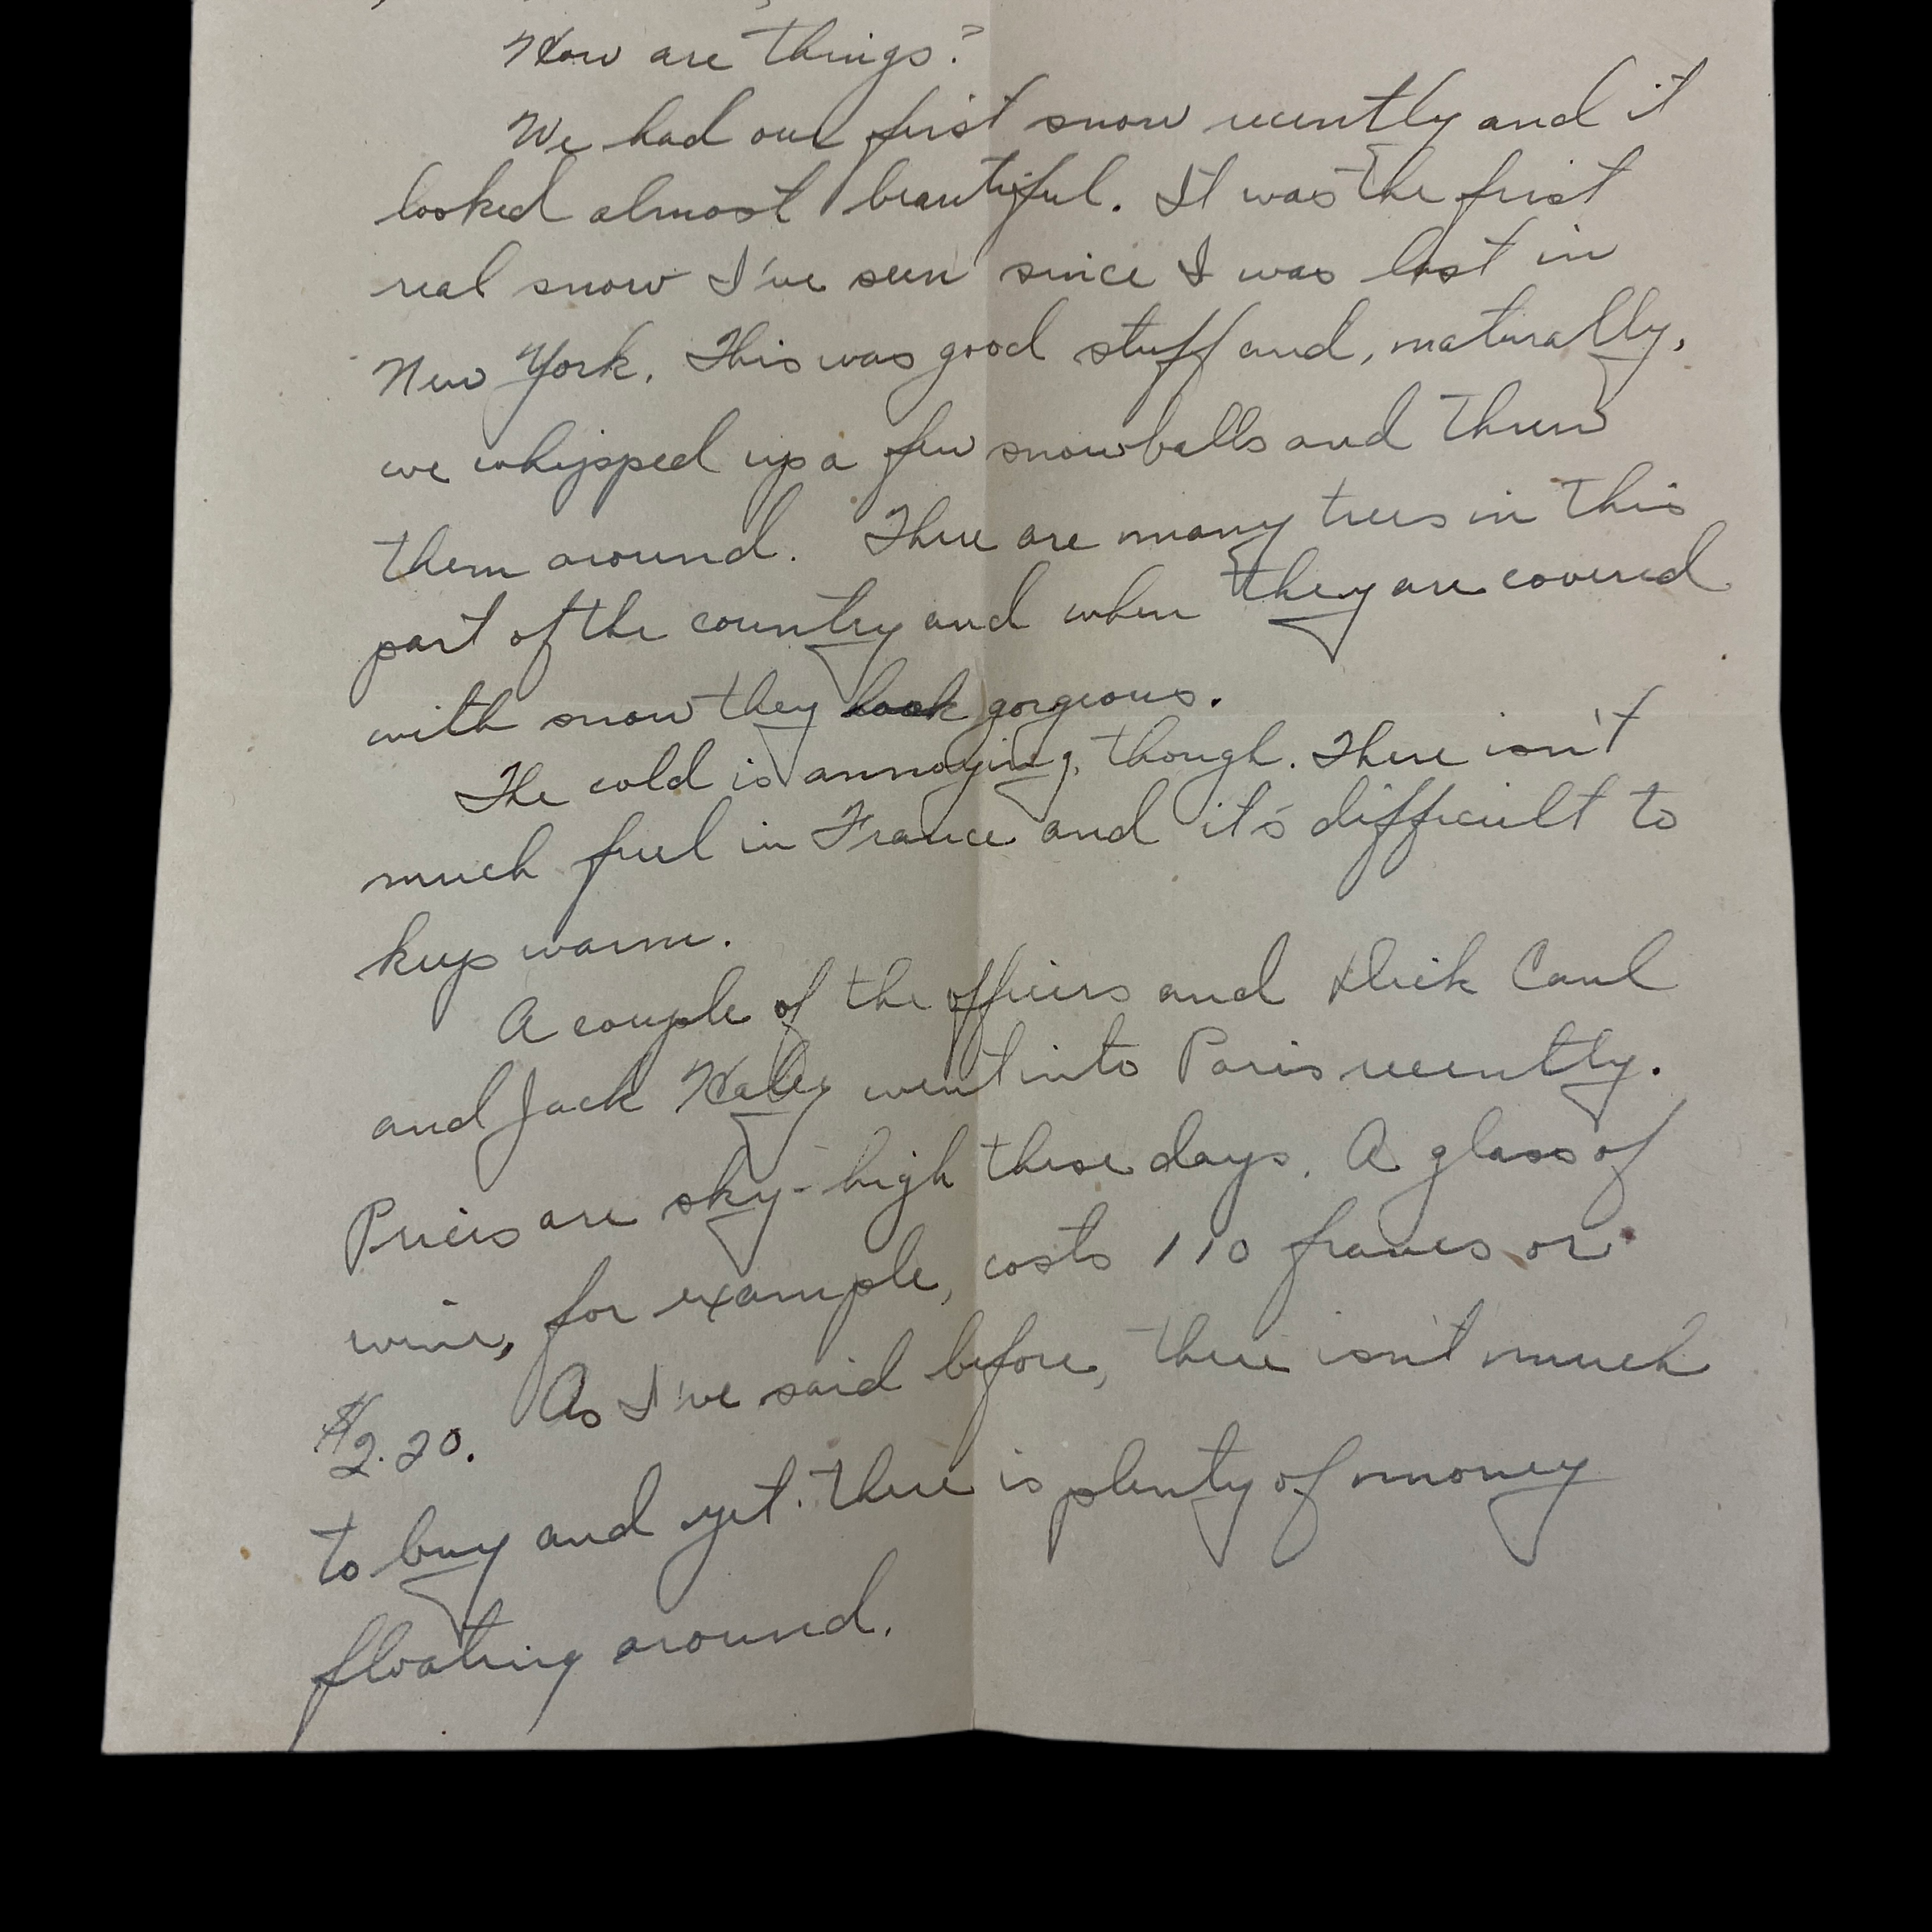 How are things?
We had our first snow recently and it
looked almost beautiful. It was the first
real snow I've seen since I was last in
New York. This was good stuff and, naturally,
we whipped up a few snowballs and threw
them around. There are many trees in this
part of the country and when they are covered
with snow they look gorgeous.
The cold is annoying, though. There isn't
much fuel in France and it's difficult to
keep warm.
A couple of the officers and Dick Caul
and Jack Haley went into Paris recently.
Prices are sky-high these days. A glass of
wine, for example, costs 110 francs or
$2.20. As I've said before, there isn't much
to buy and yet there is plenty of money
floating around.